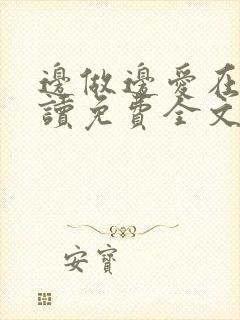 邊做邊愛在
讀免費全文
安寶